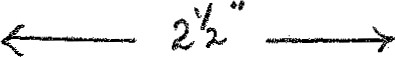 2½"